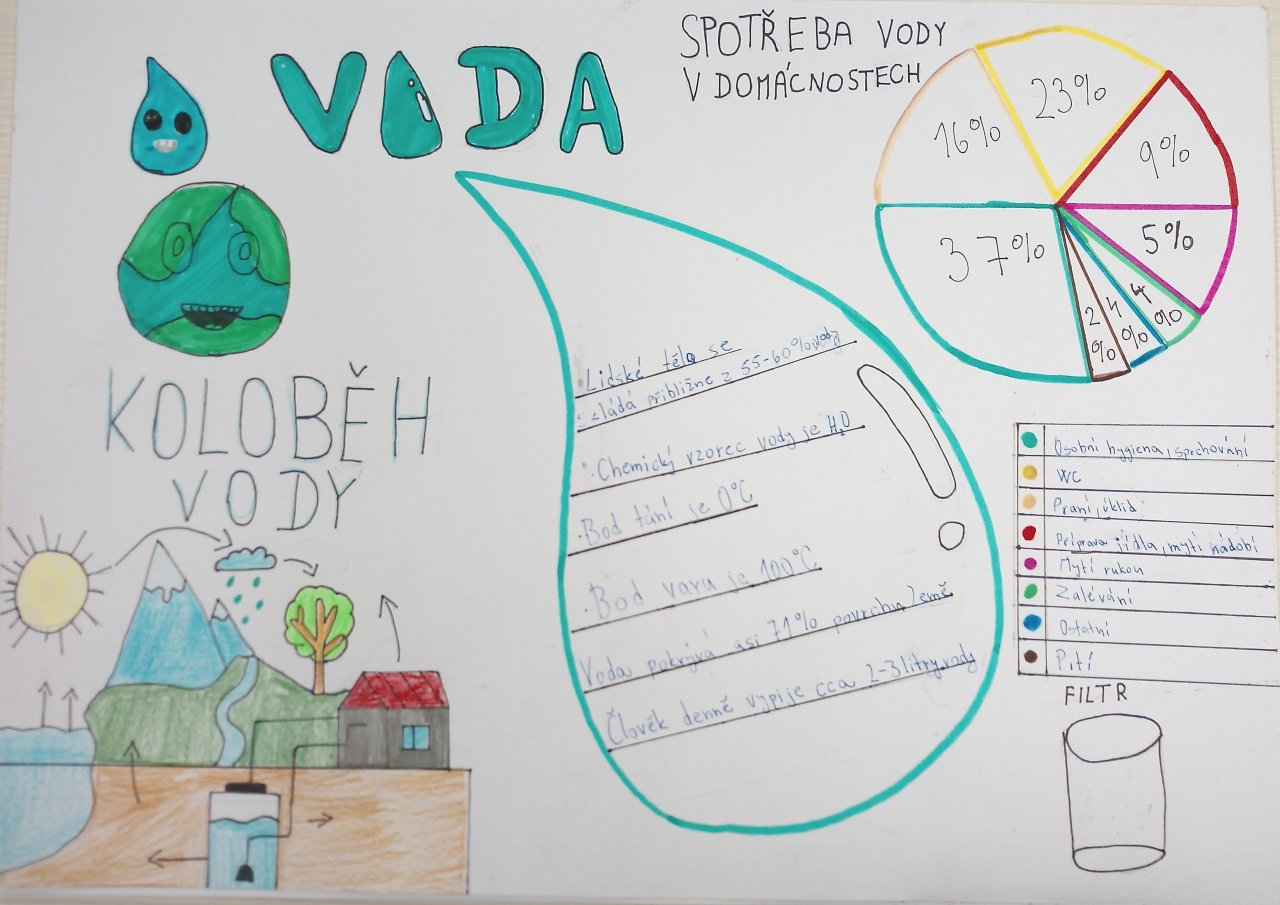 VODA
SPOTŘEBA VODY
V DOMÁCNOSTECH
23%
16%
9%
37%
5%
2%
4%
4%
KOLOBĚH
VODY
Lidské tělo se
skládá přibližně z 55-60% vody
Chemický vzorec vody je H₂O
Bod tání je 0°C
Bod varu je 100°C
Voda pokrývá asi 71% povrchu Země
Člověk denně vypije cca 2-3 litry vody
Osobní hygiena, sprchování
WC
Praní, úklid
Příprava jídla, mytí nádobí
Mytí rukou
Zalévání
Ostatní
Pití
FILTR